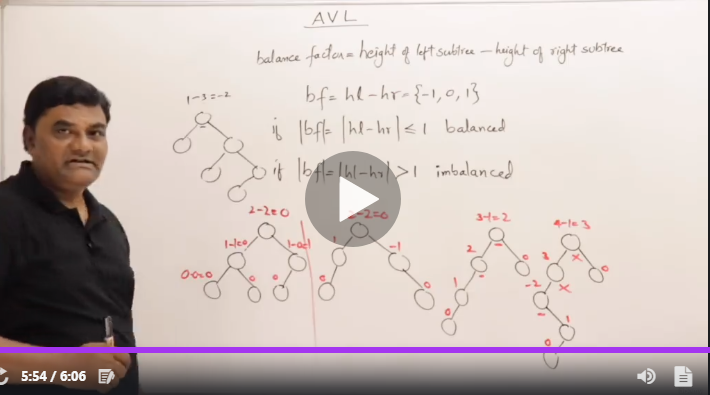 AVL
balance factor = height of left subtree – height of right subtree
bf = hl – hr = {-1, 0, 1}
if |bf| = |hl – hr| ≤ 1 balanced
if |bf| = |hl – hr| > 1 imbalanced
1-3=-2
2-2=0
1-1=0
1-0=1
0-0=0
0
0
2-2=0
1
-1
0
0
3-1=2
2
0
1
0
4-1=3
3
x
0
-2
x
1
0
5:54 / 6:06